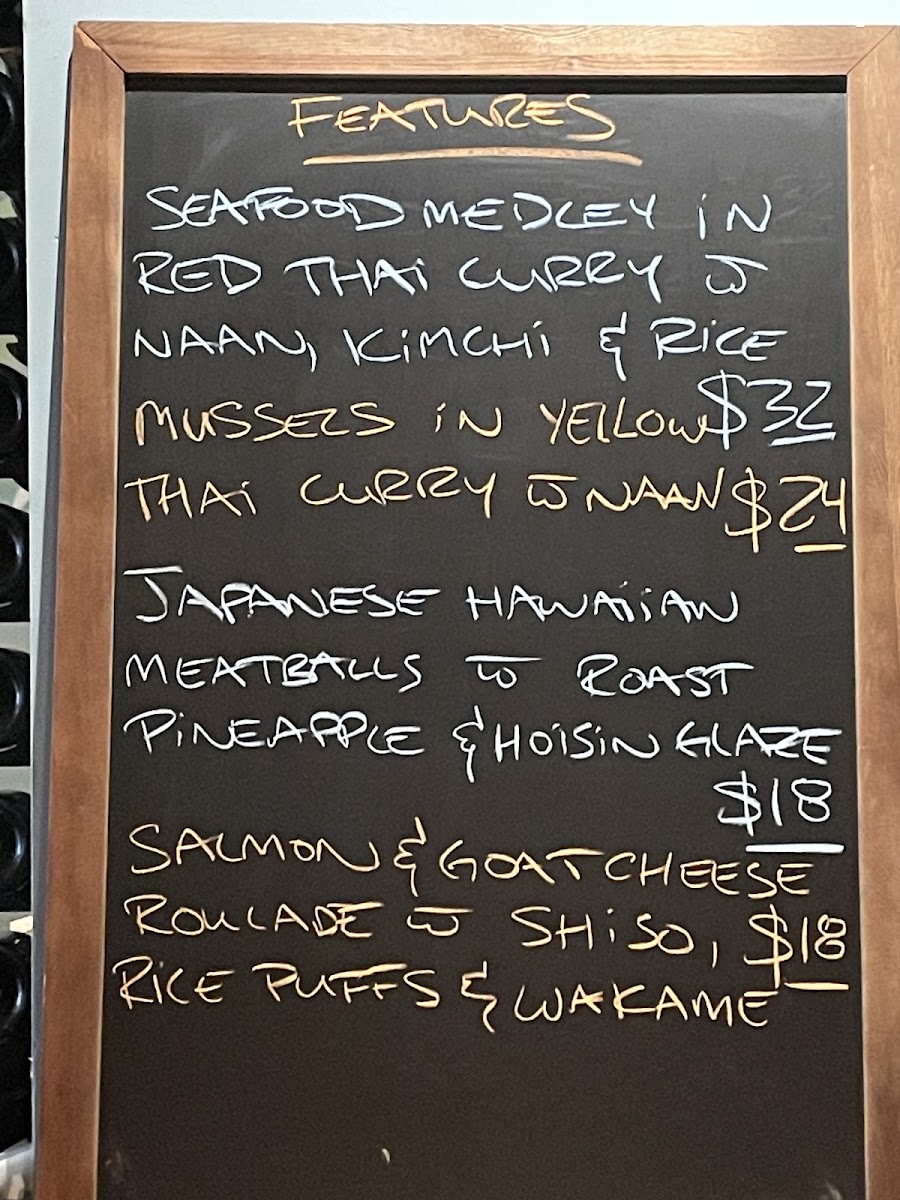 FEATURES
SEAFOOD MEDLEY iN
RED THAi CURRY w̅
NAAN, KiMCHi & RiCE
$32
MUSSELS iN YELLOW
THAi CURRY w̅ NAAN $24
JAPANESE HAWAiiAN
MEATBALLS w̅ ROAST
PiNEAPPLE & HOiSiN GLAZE
$18
SALMON & GOAT CHEESE
ROULADE w̅ SHiSO, $18
RiCE PUFFS & WAKAME